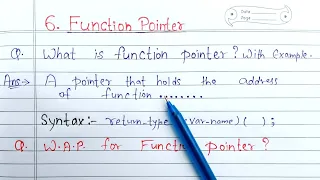 6. Function Pointer
Date
Page
Q. What is function pointer? With Example.
Ans→ A pointer that holds the address
of function ........
Syntax:- return_type var-name) ( );
Q. W.A.P. for Function pointer?